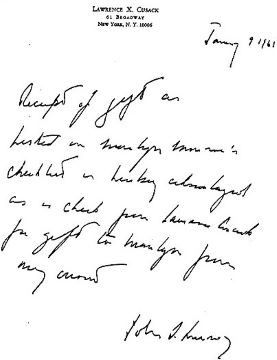 LAWRENCE X. CUSACK
61 BROADWAY
NEW YORK, N. Y. 10006
Receipt of gift as
listed on Marilyn Monroe's
checklist is hereby acknowledged
as is check from
for gift to Marilyn from
my
John F. Kennedy